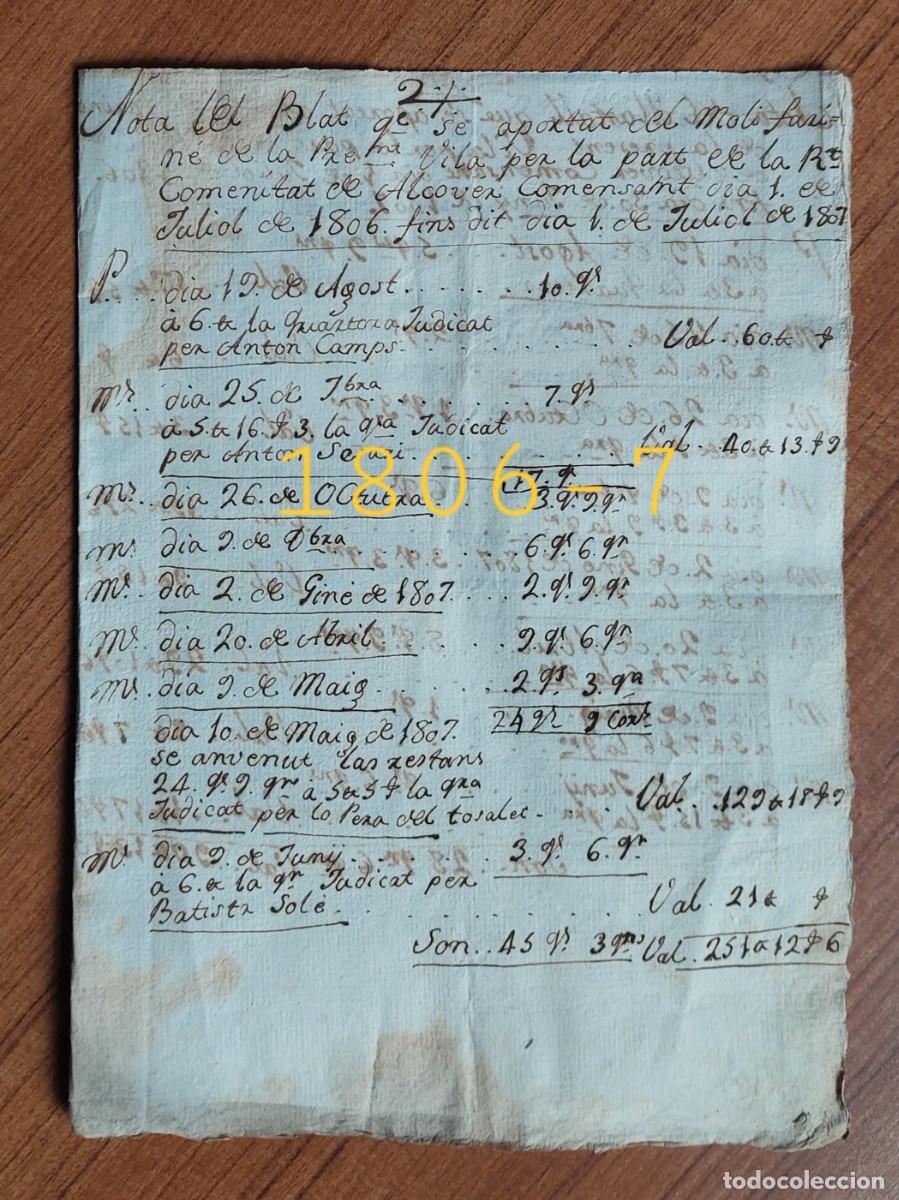 2.
Nota del Blat qe. se aportat del Moli fari=
né de la Pre.nt Vila per la part de la Rt.
Comenitat de Alcover Comensant dia 1. de
Juliol de 1806. fins dit dia 1. de Juliol de 1807
P. . . dia 19. de Agost. . . . . . . 10. qs.
à 6.₶ la Quartera Judicat
per Anton Camps. . . . . . . Val. 60₶ ₰
Ms. . . dia 25. de 7bra . . . . . . 7. qs.
à 5.₶ 16.₰ 3. la qra Judicat
per Anton . . . . . . Val. 40.₶ 13.₰ 9
17. qr.
Ms. dia 26. de OCtutra. . 3. qs. 9. qn.
ms. dia 9. de Xbra . . . 6. qs. 6. qn.
Ms. dia 2. de Giné de 1807. . . . 2. qs. 9. qn.
Ms. dia 20. de Abril . . . . 9. qs. 6. qn.
Ms. dia 9. de Maig. . . . . . 2. qs. 3. qn
24 qr. 9 Cort.
dia 10. de Maig de 1807.
se anvenut las restans
24. qs. 9. qn. à 5₶ 5₰ la qra
Judicat per lo Pera del tosalet. . . Val. 129₶ 18₰ 9
Ms. dia 9. de Junij. . . . . . 3. qs. 6. qn.
à 6.₶ la qr. Judicat per
Batista Solé. . . . . . . . Val. 21₶ ₰
Son. . 45 qs. 3 qns Val. 251₶ 12₰ 6
1806-7
todocoleccion